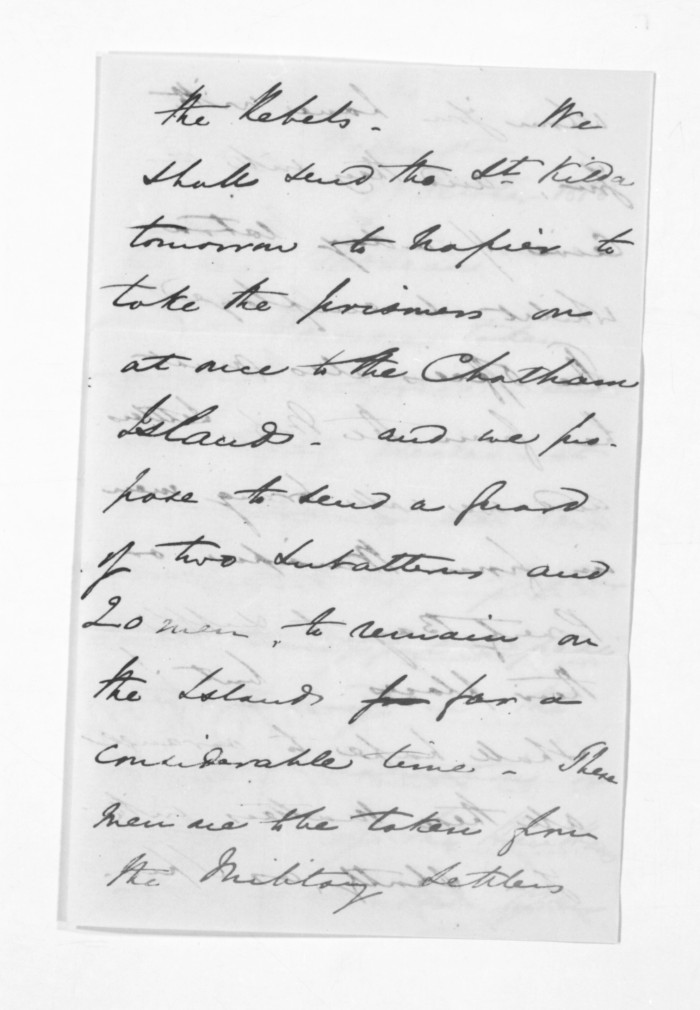 the Rebels. We
shall send the St. Kilda
tomorrow to Napier to
take the prisoners on
at once to the Chatham
Islands. and we pro-
pose to send a guard
of two Subalterns and
20 men, to remain on
the Islands for a
considerable time. These
men are to be taken from
the Military Settlers